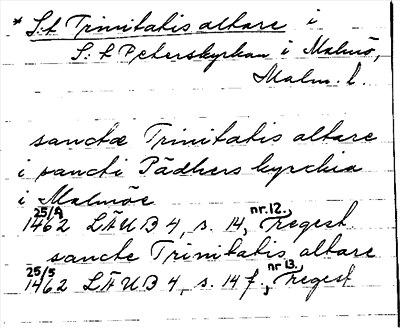 * S:t Trinitatis altare i
S:t Peterskyrkan i Malmö,
Malm. l.
sanctæ Trinitatis altare
i sancti Pädhers kyrckia
i Malmöe
25/4 1462 LÄUB 4, s. 14, nr. 12., regest
sancte Trinitatis altare
25/5 1462 LÄUB 4, s. 14 f., nr 13., regest